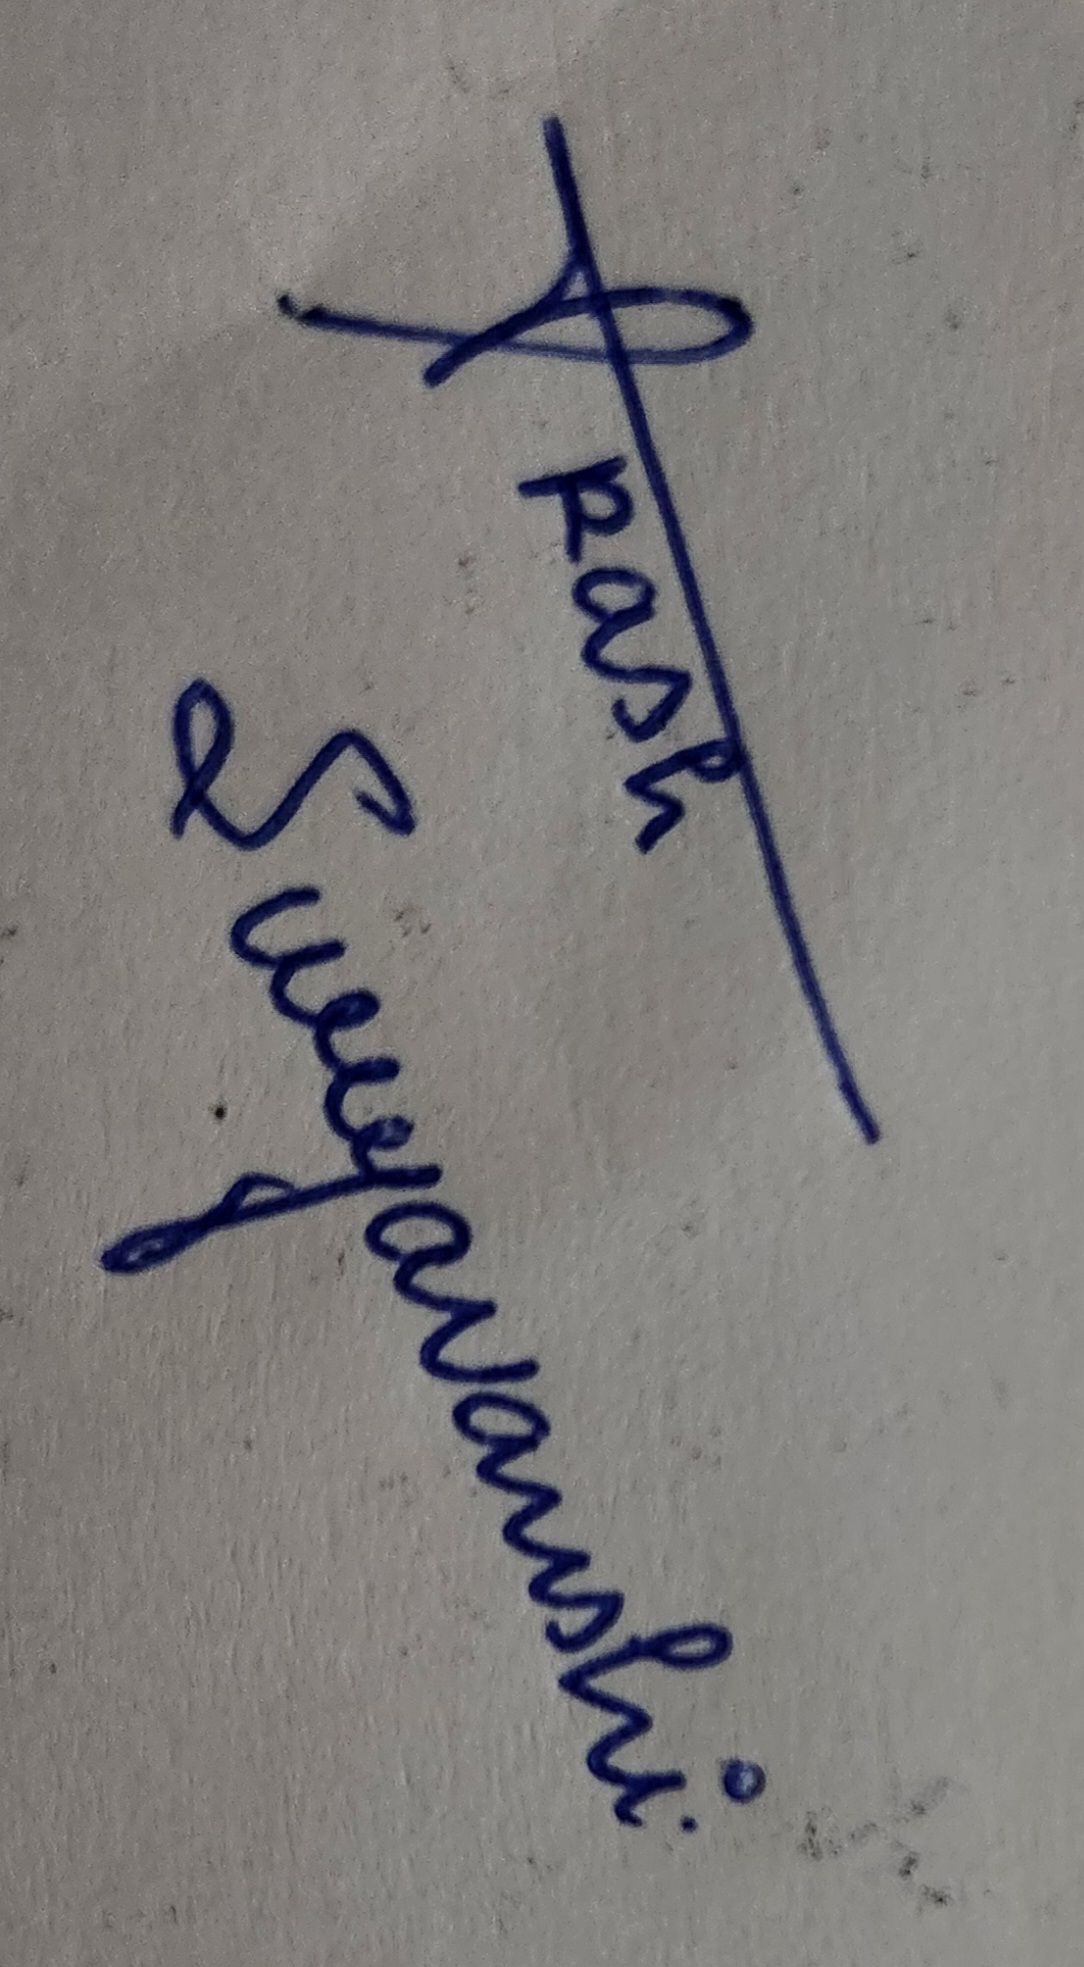 Akash
Suryavanshi